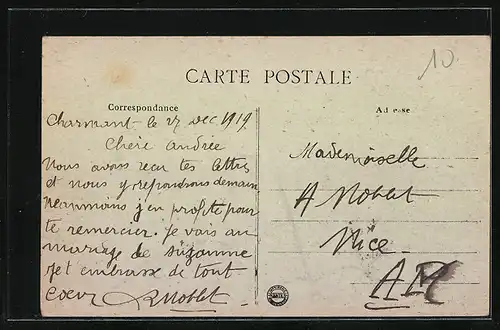 10
CARTE POSTALE
Correspondance
Adresse
Charmant le 27 Dec 1919
Chère Andrée
Nous avons recu tes lettres
et nous y repondrons demain
neanmoins j'en profite pour
te remercier. Je vais au
mariage de Suzanne
Je t embrasse de tout
coeur Noblet
Mademoiselle
A Noblet
Nice
A M